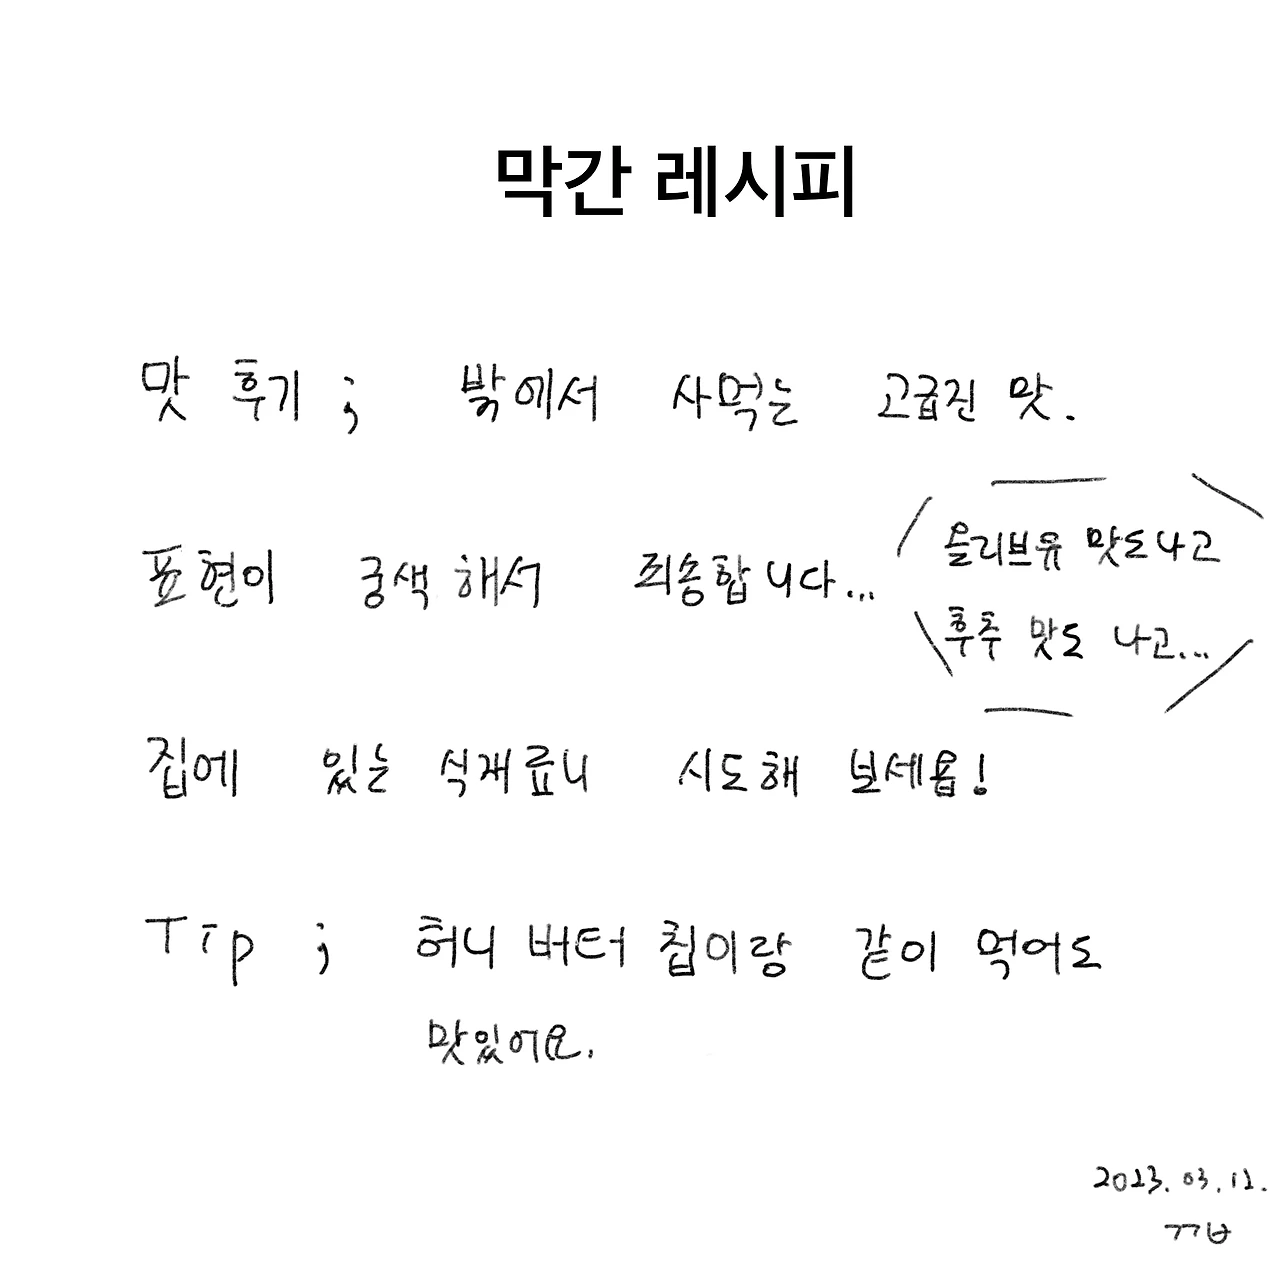 막간 레시피
맛 후기; 밖에서 사먹는 고급진 맛.
표현이 궁색해서 죄송합니다...
올리브유 맛도나고
후추 맛도 나고...
집에 있는 식재료니 시도해 보세욥!
Tip ; 허니 버터 칩이랑 같이 먹어도
맛있어요.
2023. 03. 12.
ㄲㅂ